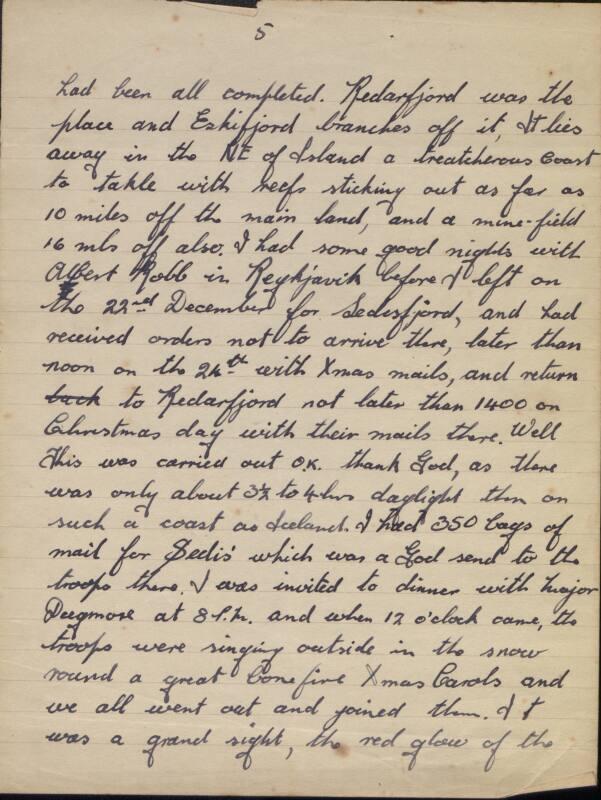 5
had been all completed. Redarfjord was the
place and Eskifjord branches off it, It lies
away in the NE of Island a treatcherous coast
to takle with reefs sticking out as far as
10 miles off the main land, and a mine-field
16 mls off also. I had some good nights with
Albert Robb in Reykjavik before I left on
the 22nd December for Sedesfjord, and had
received orders not to arrive there, later than
noon on the 24th with Xmas mails, and return
back to Redarfjord not later than 1400 on
Christmas day with their mails there. Well
this was carried out O.K. thank God, as there
was only about 3½ to 4 hrs daylight then on
such a coast as Iceland. I had 350 bags of
mail for Sedis' which was a God send to the
troops there. I was invited to dinner with Major
at 8 P.M. and when 12 o'clock came, the
troops were singing outside in the snow
round a great bonefire Xmas Carols and
we all went out and joined them. It
was a grand sight, the red glow of the